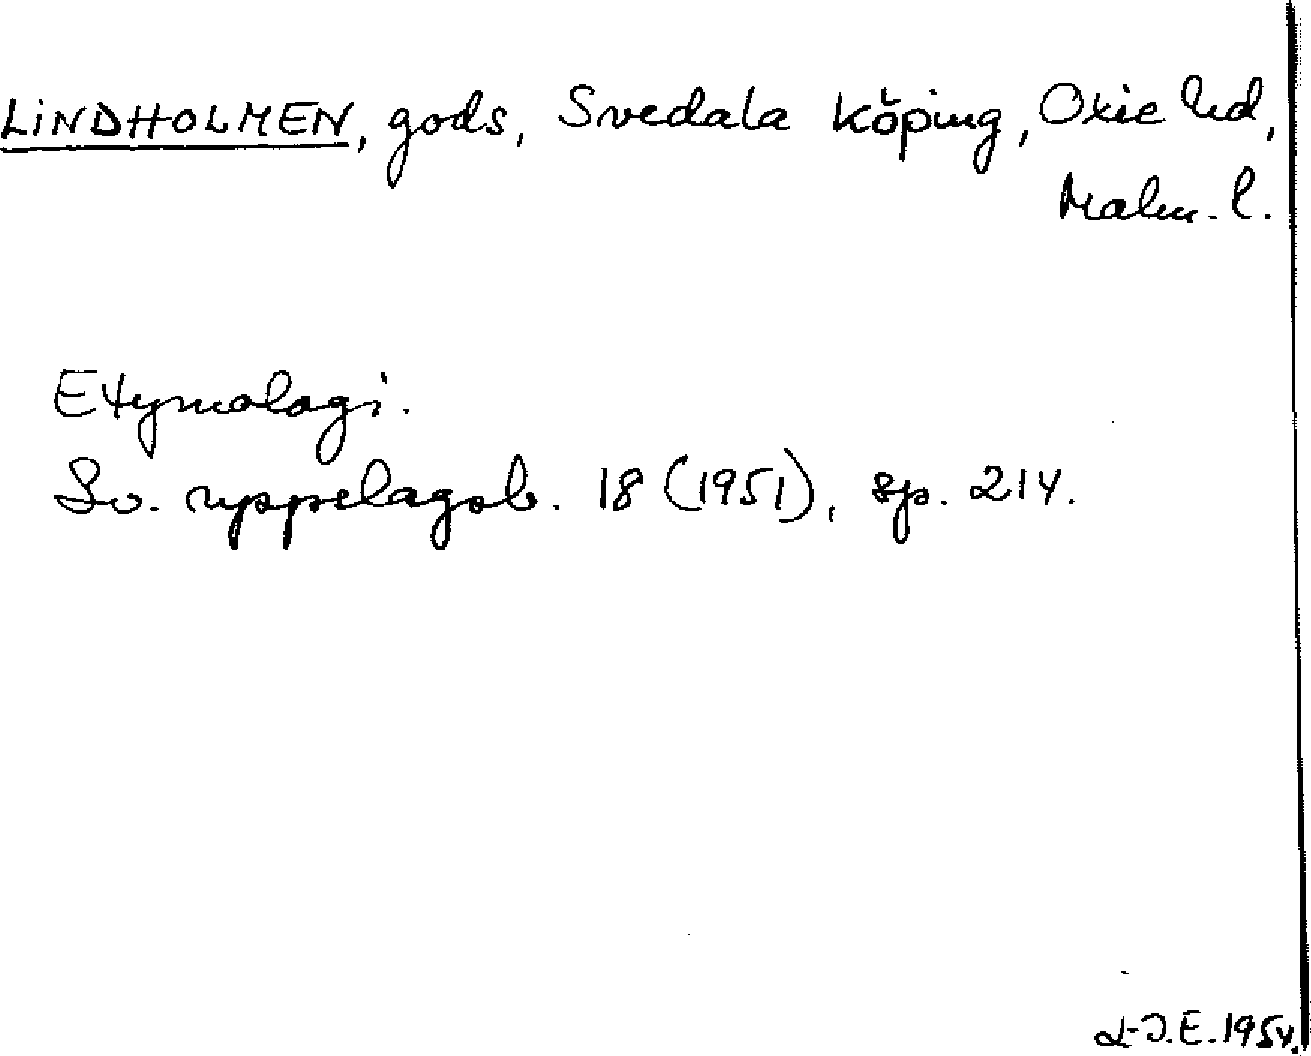 LINDHOLMEN, gods, Svedala köping, Oxie hd,
Malm. l.
Etymologi.
Sv. uppslagsb. 18 (1951), sp. 214.
L-J.E. 1954.